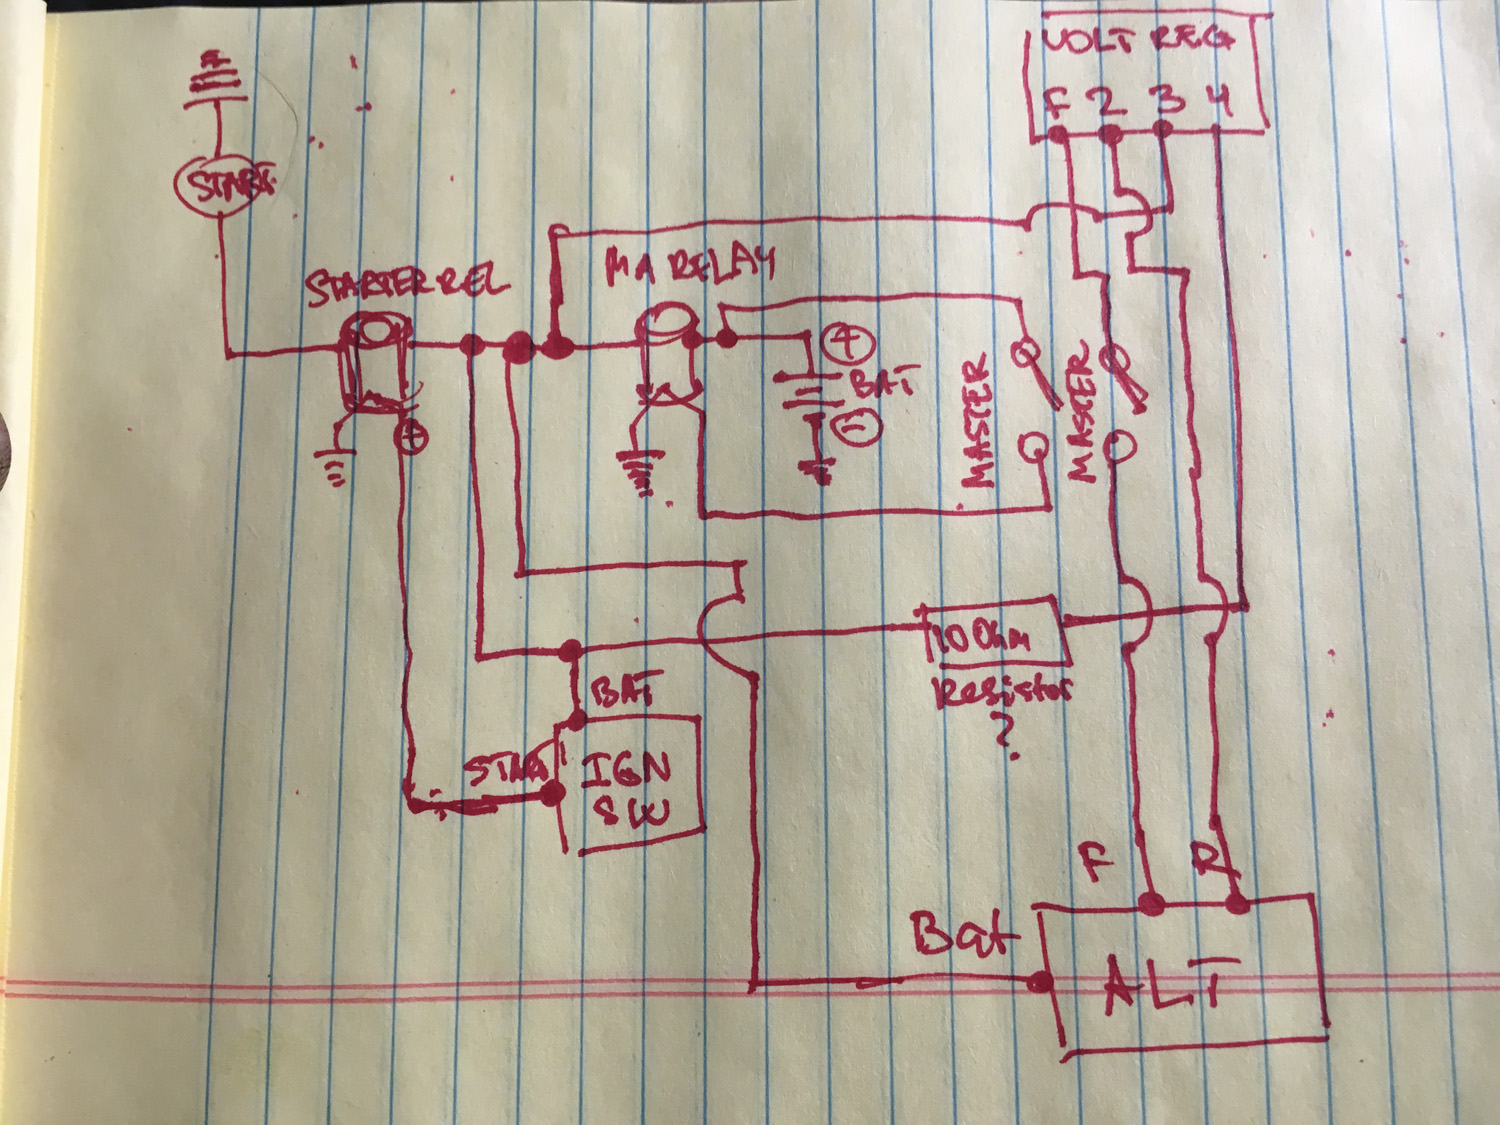 VOLT REG
F 2 3 4
START
STARTER REL
MA RELAY
+
BAT
−
MASTER
MASTER
+
10 Ohm
Resistor
?
BAT
START
IGN
SW
F
R
Bat
ALT